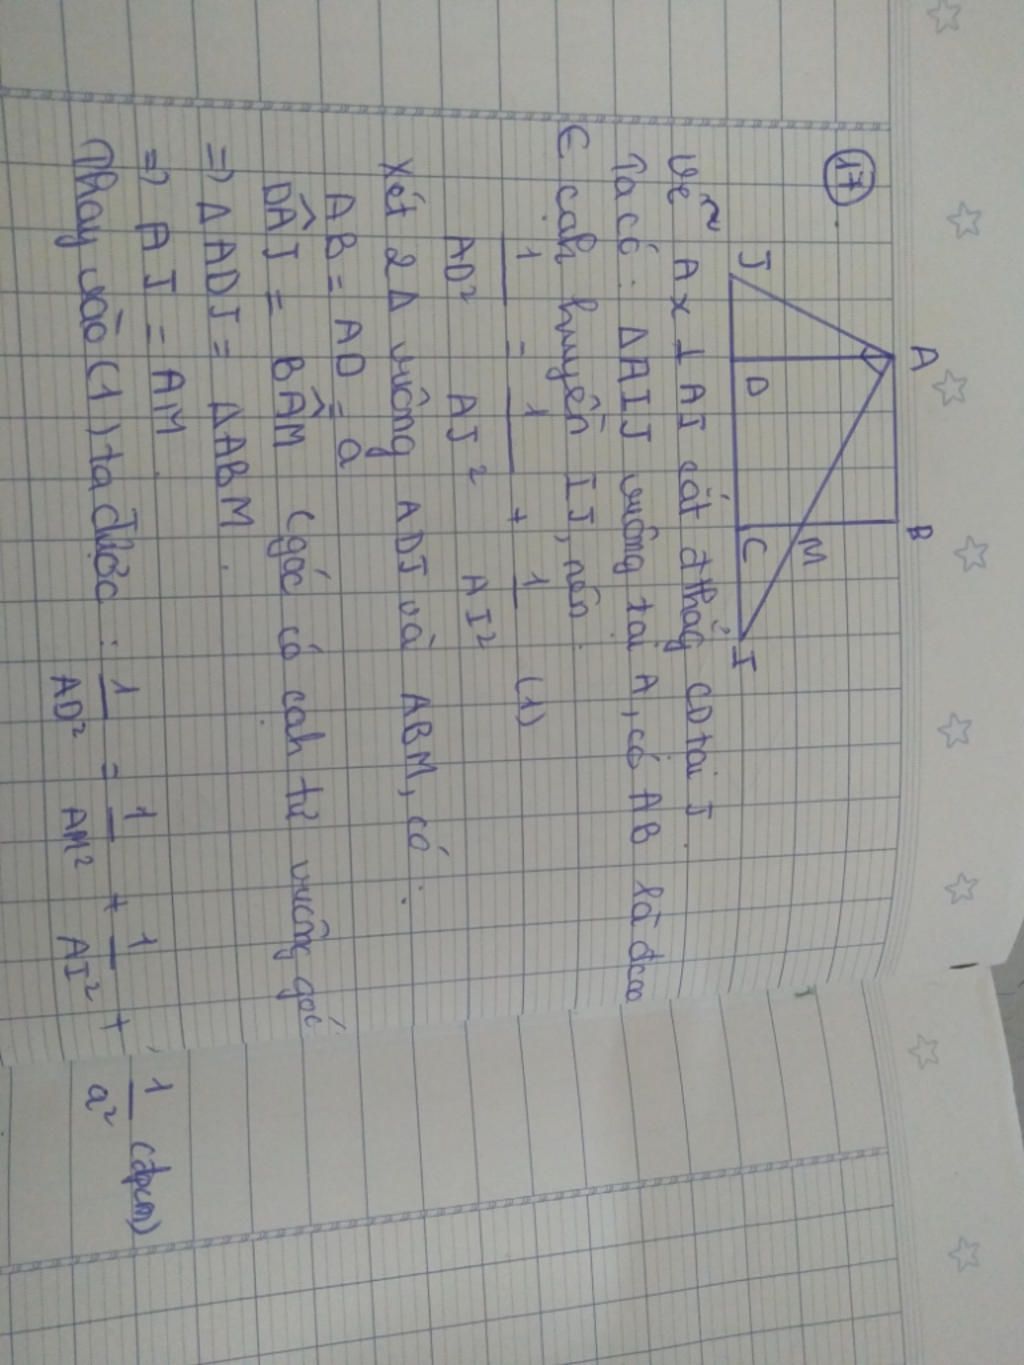 17.
A
B
J
D
C
M
I
Vẽ Ax ⊥ AI cắt đthẳg CD tại J.
Ta có: ΔAIJ vuông tại A, có AB là đcao
∈ cah huyền IJ, nên:
1/AD² = 1/AJ² + 1/AI² (1)
Xét 2Δ vuông ADJ và ABM, có:
AB = AD = a
DÂJ = BÂM (góc có cah tử vuông góc
=> ΔADJ = ΔABM.
=> AJ = AM.
Thay vào (1) ta được: 1/AD² = 1/AM² + 1/AI² + 1/a² (đpcm)